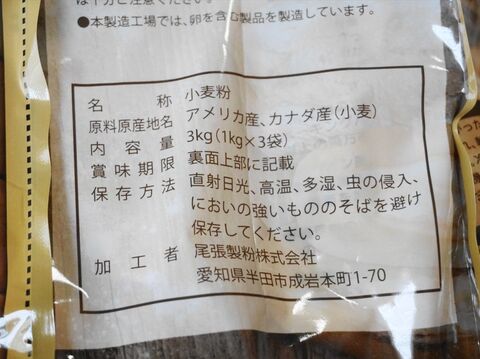 は十分ご注意ください。
●本製造工場では、卵を含む製品を製造しています。
名称 小麦粉
原料原産地名 アメリカ産、カナダ産(小麦)
内容量 3kg(1kg×3袋)
賞味期限 裏面上部に記載
保存方法 直射日光、高温、多湿、虫の侵入、
においの強いもののそばを避け
保存してください。
加工者 尾張製粉株式会社
愛知県半田市成岩本町1-70